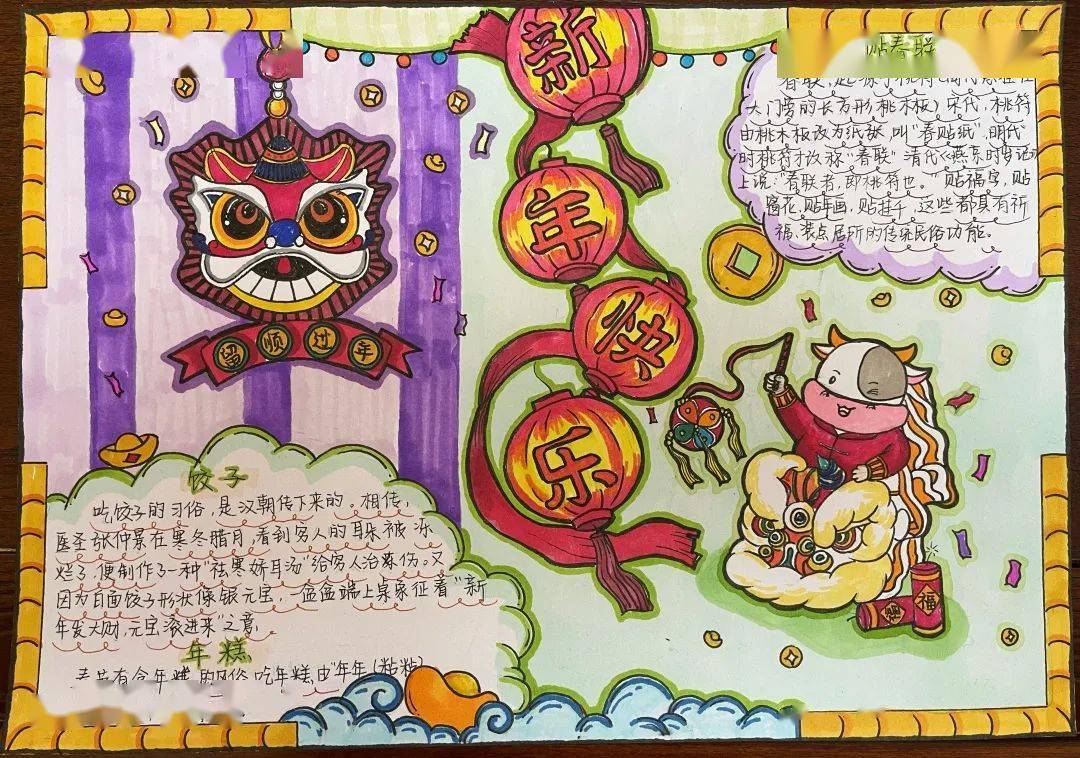 新
年
快
乐
顺
过
年
春联
大门旁的长方形桃木板)宋代,桃符
由桃木板改为纸板,叫"春贴纸",明代
时桃符才改称"春联"清代《燕京时岁记》
上说:"春联者,即桃符也。"贴福字,贴
窗花,贴年画,贴挂千,这些都具有祈
福、装点居所的传统民俗功能。
饺子
吃饺子的习俗,是汉朝传下来的。相传,
医圣张仲景在寒冬腊月,看到穷人的耳朵被冻
烂了,便制作了一种"祛寒娇耳汤"给穷人治冻伤。又
因为白面饺子形状像银元宝,一盆盆端上桌象征着"新
年发大财,元宝滚进来"之意,
年糕
吃年糕,由"年年(粘粘)
福